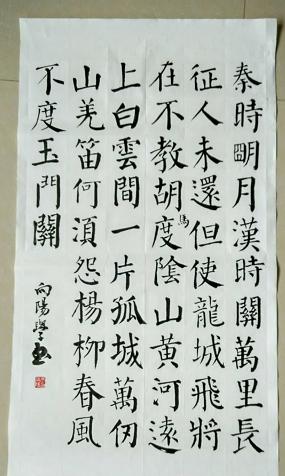 秦時明月漢時關萬里長
征人未還但使龍城飛將
在不教胡馬度陰山黄河遠
上白雲間一片孤城萬仞
山羌笛何湏怨楊柳春風
不度玉門關
向陽學書